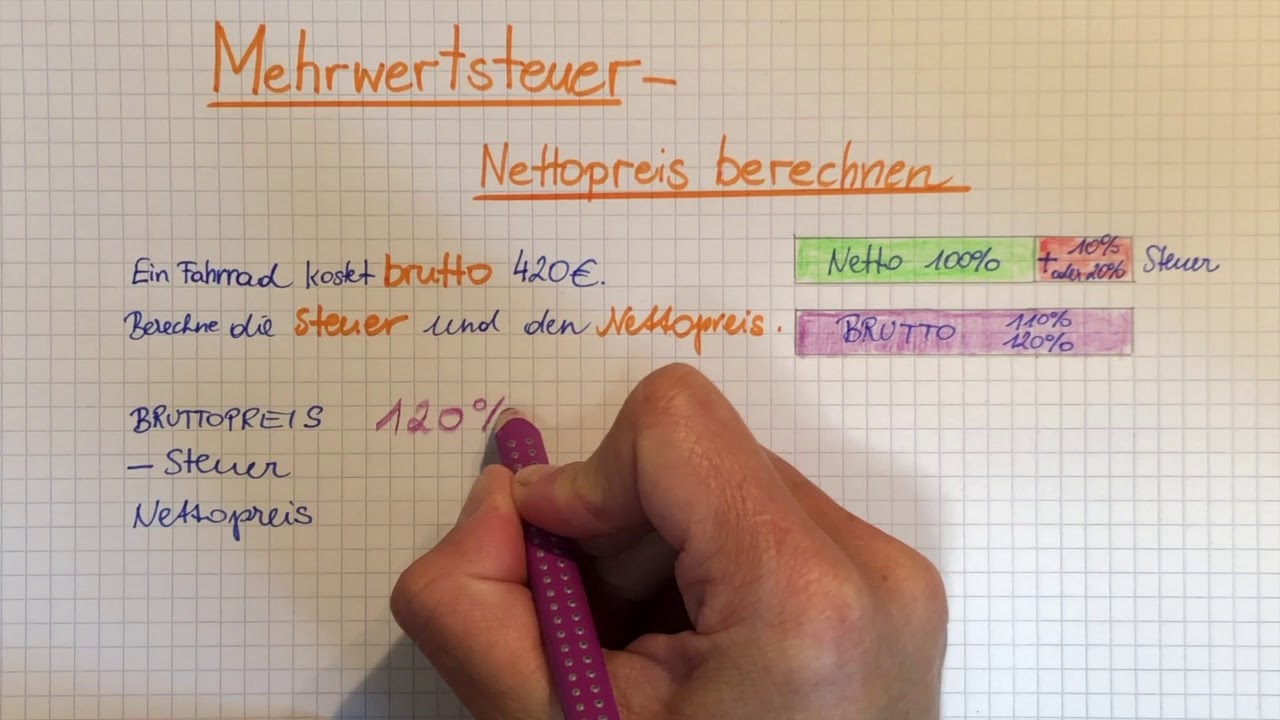 Mehrwertsteuer-
Nettopreis berechnen
Ein Fahrrad kostet brutto 420€.
Berechne die Steuer und den Nettopreis.
Netto 100% + 10% oder 20% Steuer
BRUTTO 110% 120%
BRUTTOPREIS 120%
- Steuer
Nettopreis